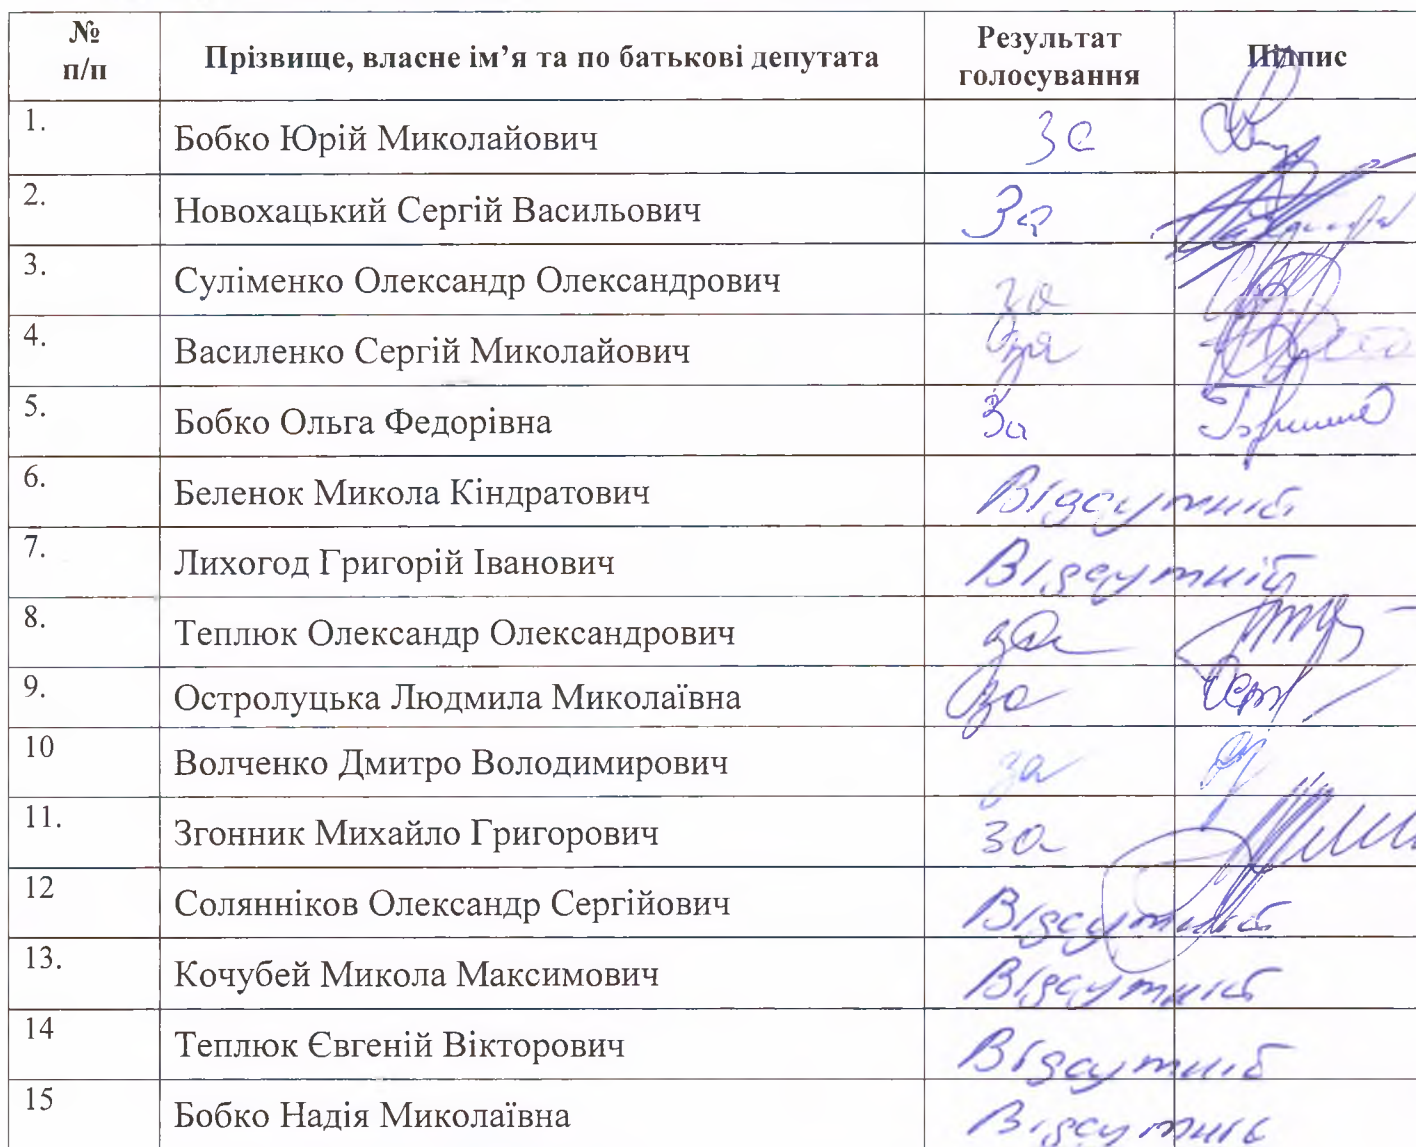 № п/п Прізвище, власне ім’я та по батькові депутата Результат голосування Підпис
1. Бобко Юрій Миколайович За
2. Новохацький Сергій Васильович За
3. Суліменко Олександр Олександрович за
4. Василенко Сергій Миколайович за
5. Бобко Ольга Федорівна За
6. Беленок Микола Кіндратович Відсутній
7. Лихогод Григорій Іванович Відсутній
8. Теплюк Олександр Олександрович за
9. Остролуцька Людмила Миколаївна за
10 Волченко Дмитро Володимирович за
11. Згонник Михайло Григорович за
12 Солянніков Олександр Сергійович Відсутній
13. Кочубей Микола Максимович Відсутній
14 Теплюк Євгеній Вікторович Відсутній
15 Бобко Надія Миколаївна